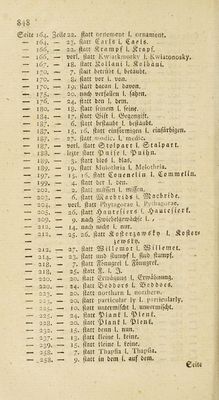 848
Seite 164. Zeile 22. statt ornement l. ornament.
— 164. — 27. statt Carls l. Caels.
— 166. — 22. statt Krampf l. Krapf.
— 166. — vorl. statt Kwiatkousky l. Kwiatonosky.
— 167. — 18. statt Kollani l. Kolbáni.
— 170. — 7. statt betrübt l. betäubt.
— 170. — 8. statt vor l. von.
— 170. — 19. statt bacan l. davon.
— 175. — 20. nach verfallen l. sahen.
— 176. — 24. statt den l. dem.
— 180. — 12. statt seinem l. seine.
— 184. — 17. statt Gift l. Gegengift.
— 187. — 6. statt bestaubt l. bestäubt.
— 187. — 15. 16. statt einförmigen l. einfärbigen.
— 187. — 27. statt medic. l. medic.
— 187. — vorl. statt Stolpart l. Stalpart.
— 188. — letzte statt Puife l. Puihn.
— 189. — 3. statt bios l. blas.
— 189. — 19. statt Molothria l. Melothria.
— 197. — 15. 16. statt Couenelin l. Commelin.
— 199. — 4. statt der l. den.
— 202. — 2. statt müssen l. missen.
— 203. — 6. statt Macbrids l. Macbride.
— 203. — vorl. statt Phytagorae l. Pythagorae.
— 205. — 26. statt Hautesiers l. Hautesierk.
— 209. — 9. nach Zwiebelgewächse l. ,
— 212. — 14. nach nicht l. nur.
— 212. — 25. 26. statt Kosterzawsky l. Kosterzewsky.
— 212. — 27. statt Willemot l. Willemet.
— 214. — 23. statt und stumpf l. sind stumpf.
— 218. — 7. statt Fönugrel l. Fönugrel.
— 218. — 25. statt R. l. J.
— 220. — 20. statt Erwähnnt l. Erwähnung.
— 220. — 24. statt Boddors l. Boddoes.
— 223. — 20. statt northern l. northern.
— 224. — 20. statt particular ly l. particularly.
— 225. — 10. statt untermischt l. unvermischt.
— 225. — 24. statt Plant l. Plent.
— 228. — 20. statt Plank l. Plent.
— 232. — 15. statt denn l. nun.
— 237. — 13. statt kleine l. seine.
— 239. — 15. statt kleine l. seine.
— 258. — 7. statt Thapfia l. Thapsia.
— 258. — 9. statt in dem l. auf dem.
Seite